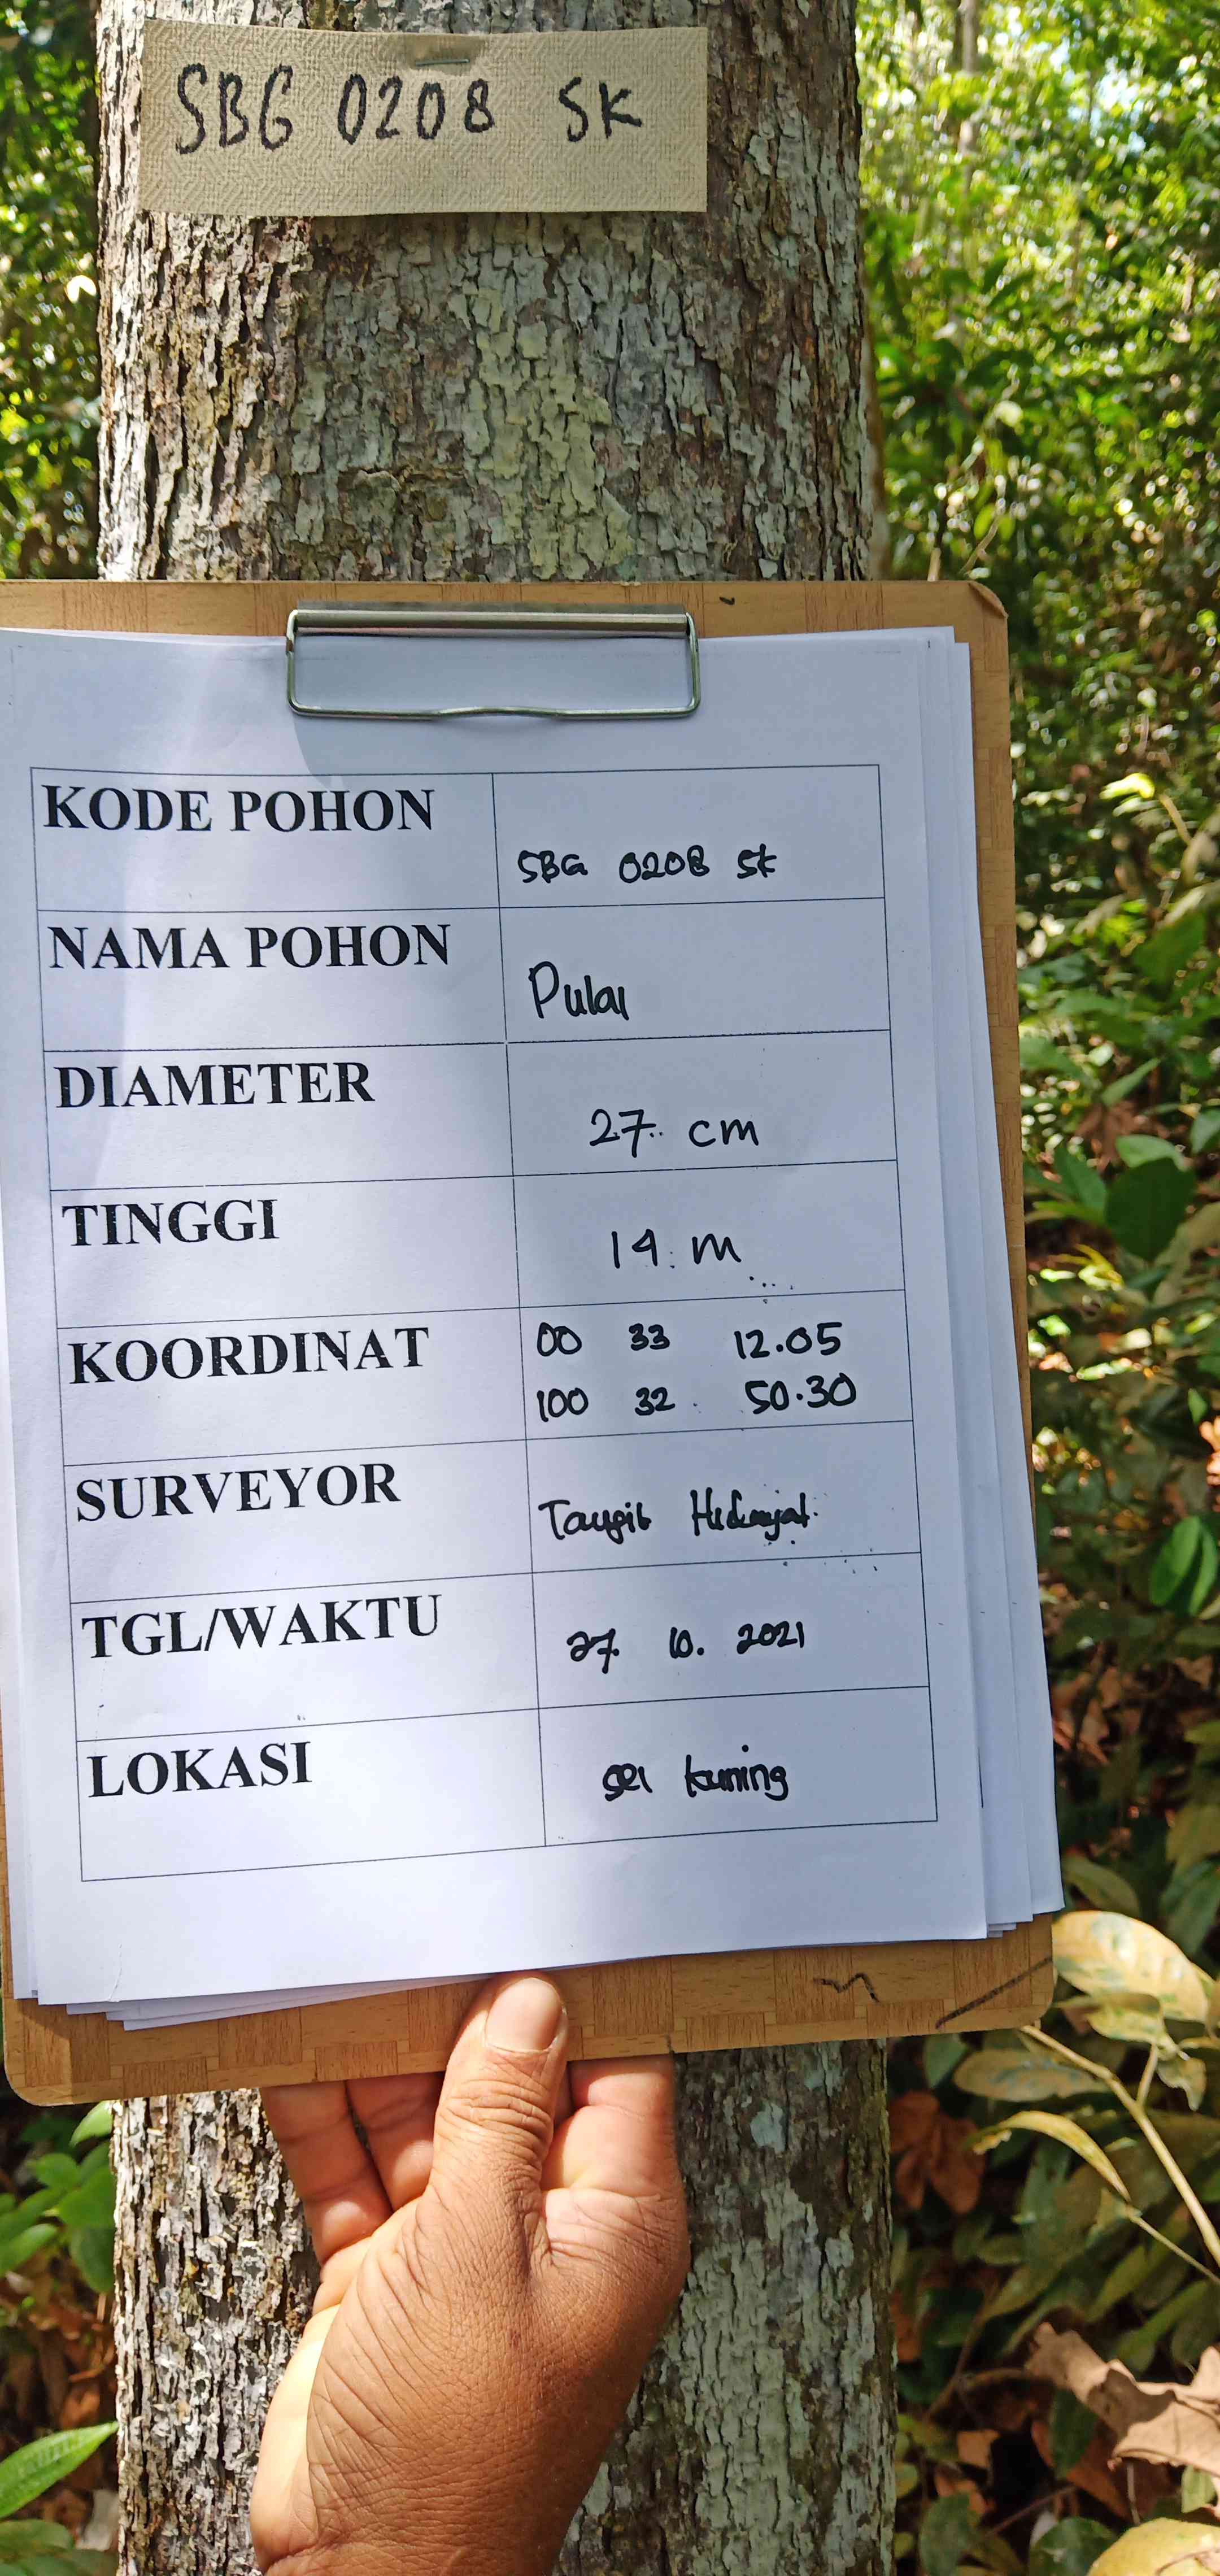 SBG 0208 SK
KODE POHON
SBG 0208 SK
NAMA POHON
Pulai
DIAMETER
27 cm
TINGGI
14 m
KOORDINAT
00 33 12.05
100 32 50.30
SURVEYOR
Taufik Hidayat
TGL/WAKTU
27 10. 2021
LOKASI
sei kuning